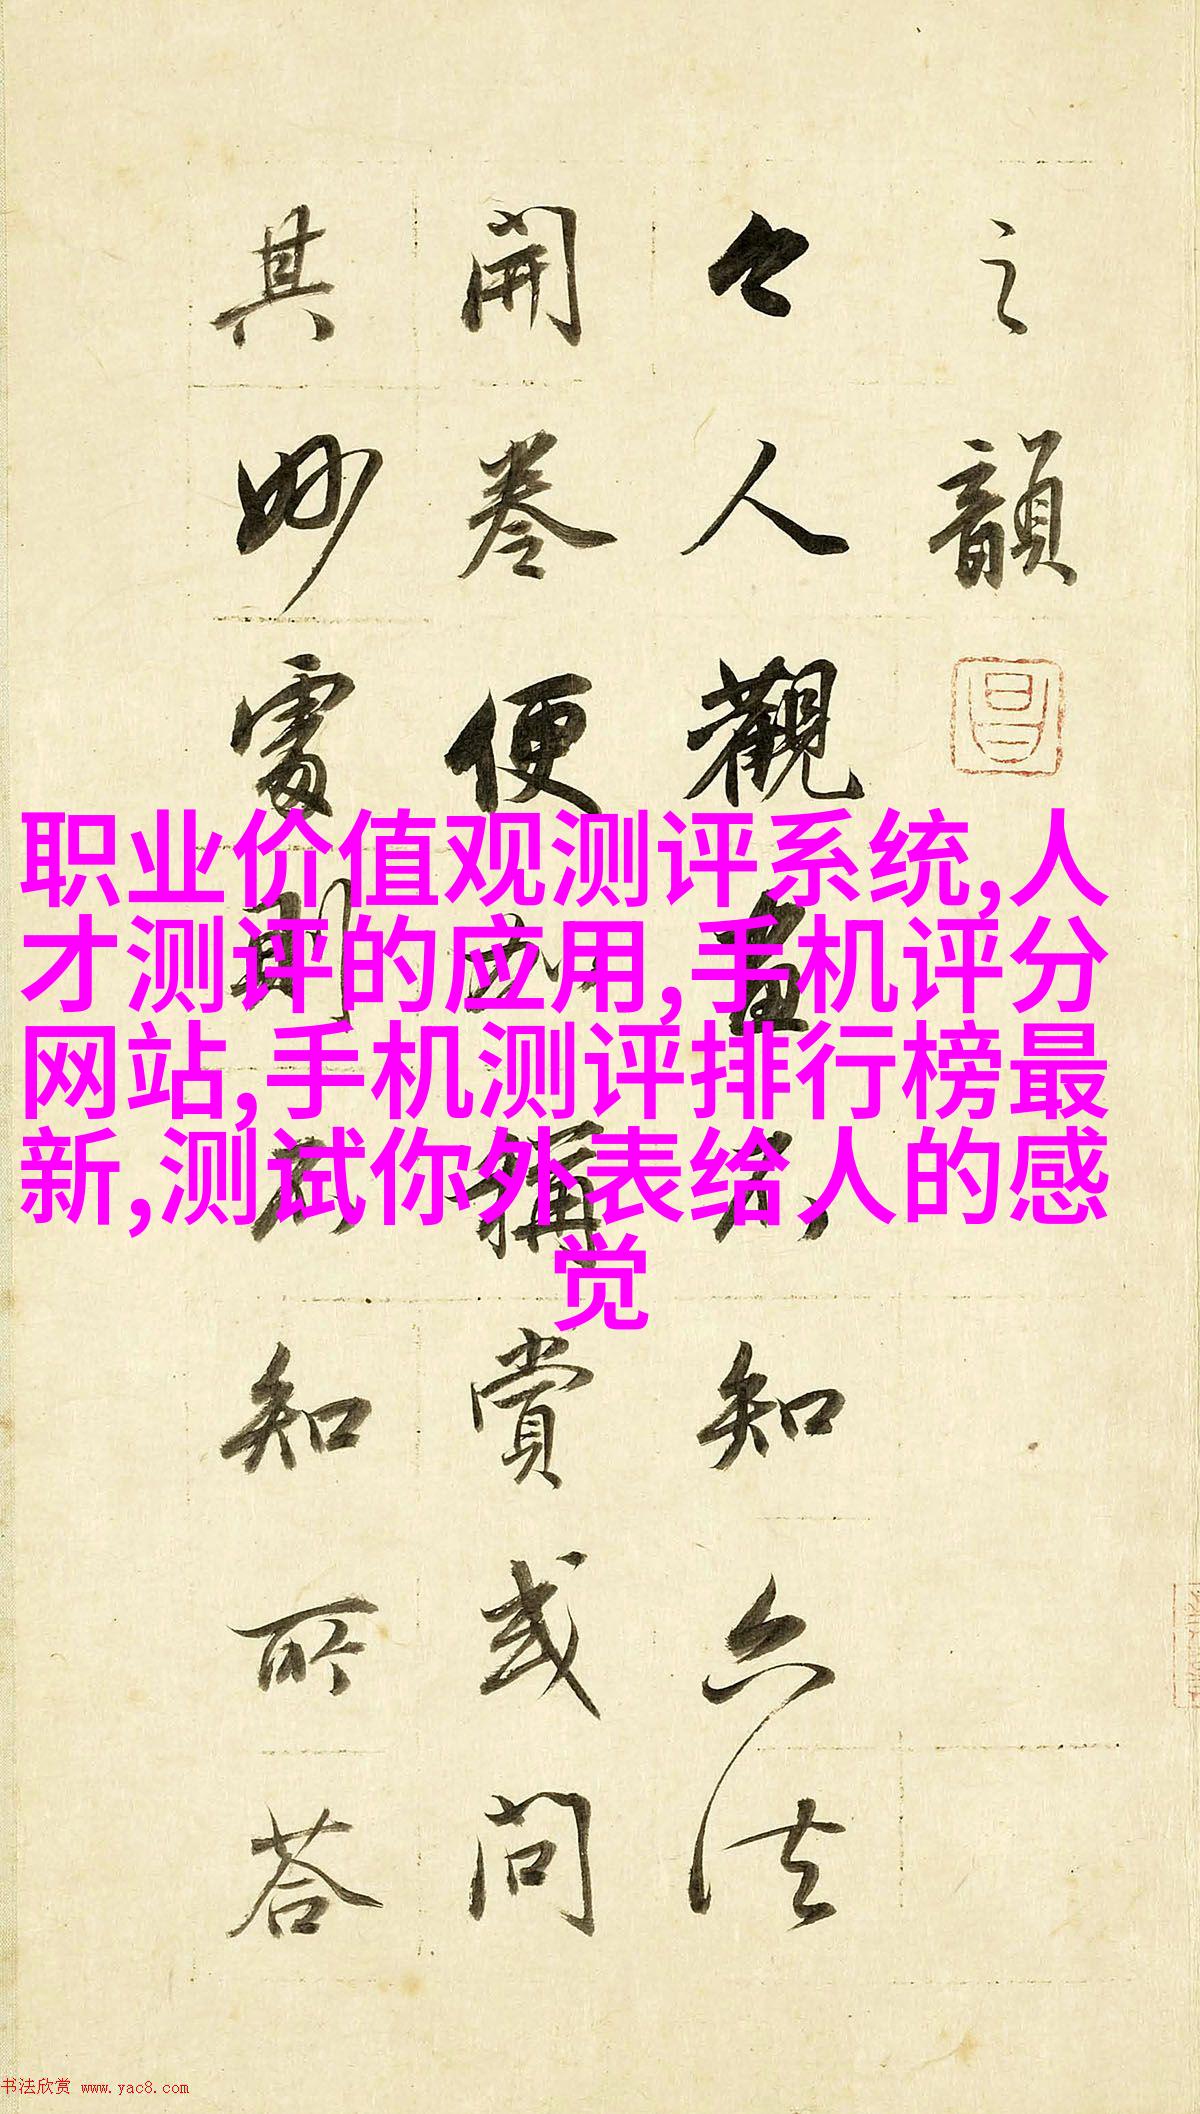 之韻
今人觀畫不知六法
開卷便加稱賞或問
其妙處則不知所荅
职业价值观测评系统,人
才测评的应用,手机评分
网站,手机测评排行榜最
新,测试你外表给人的感
觉
书法欣赏 www.yac8.com